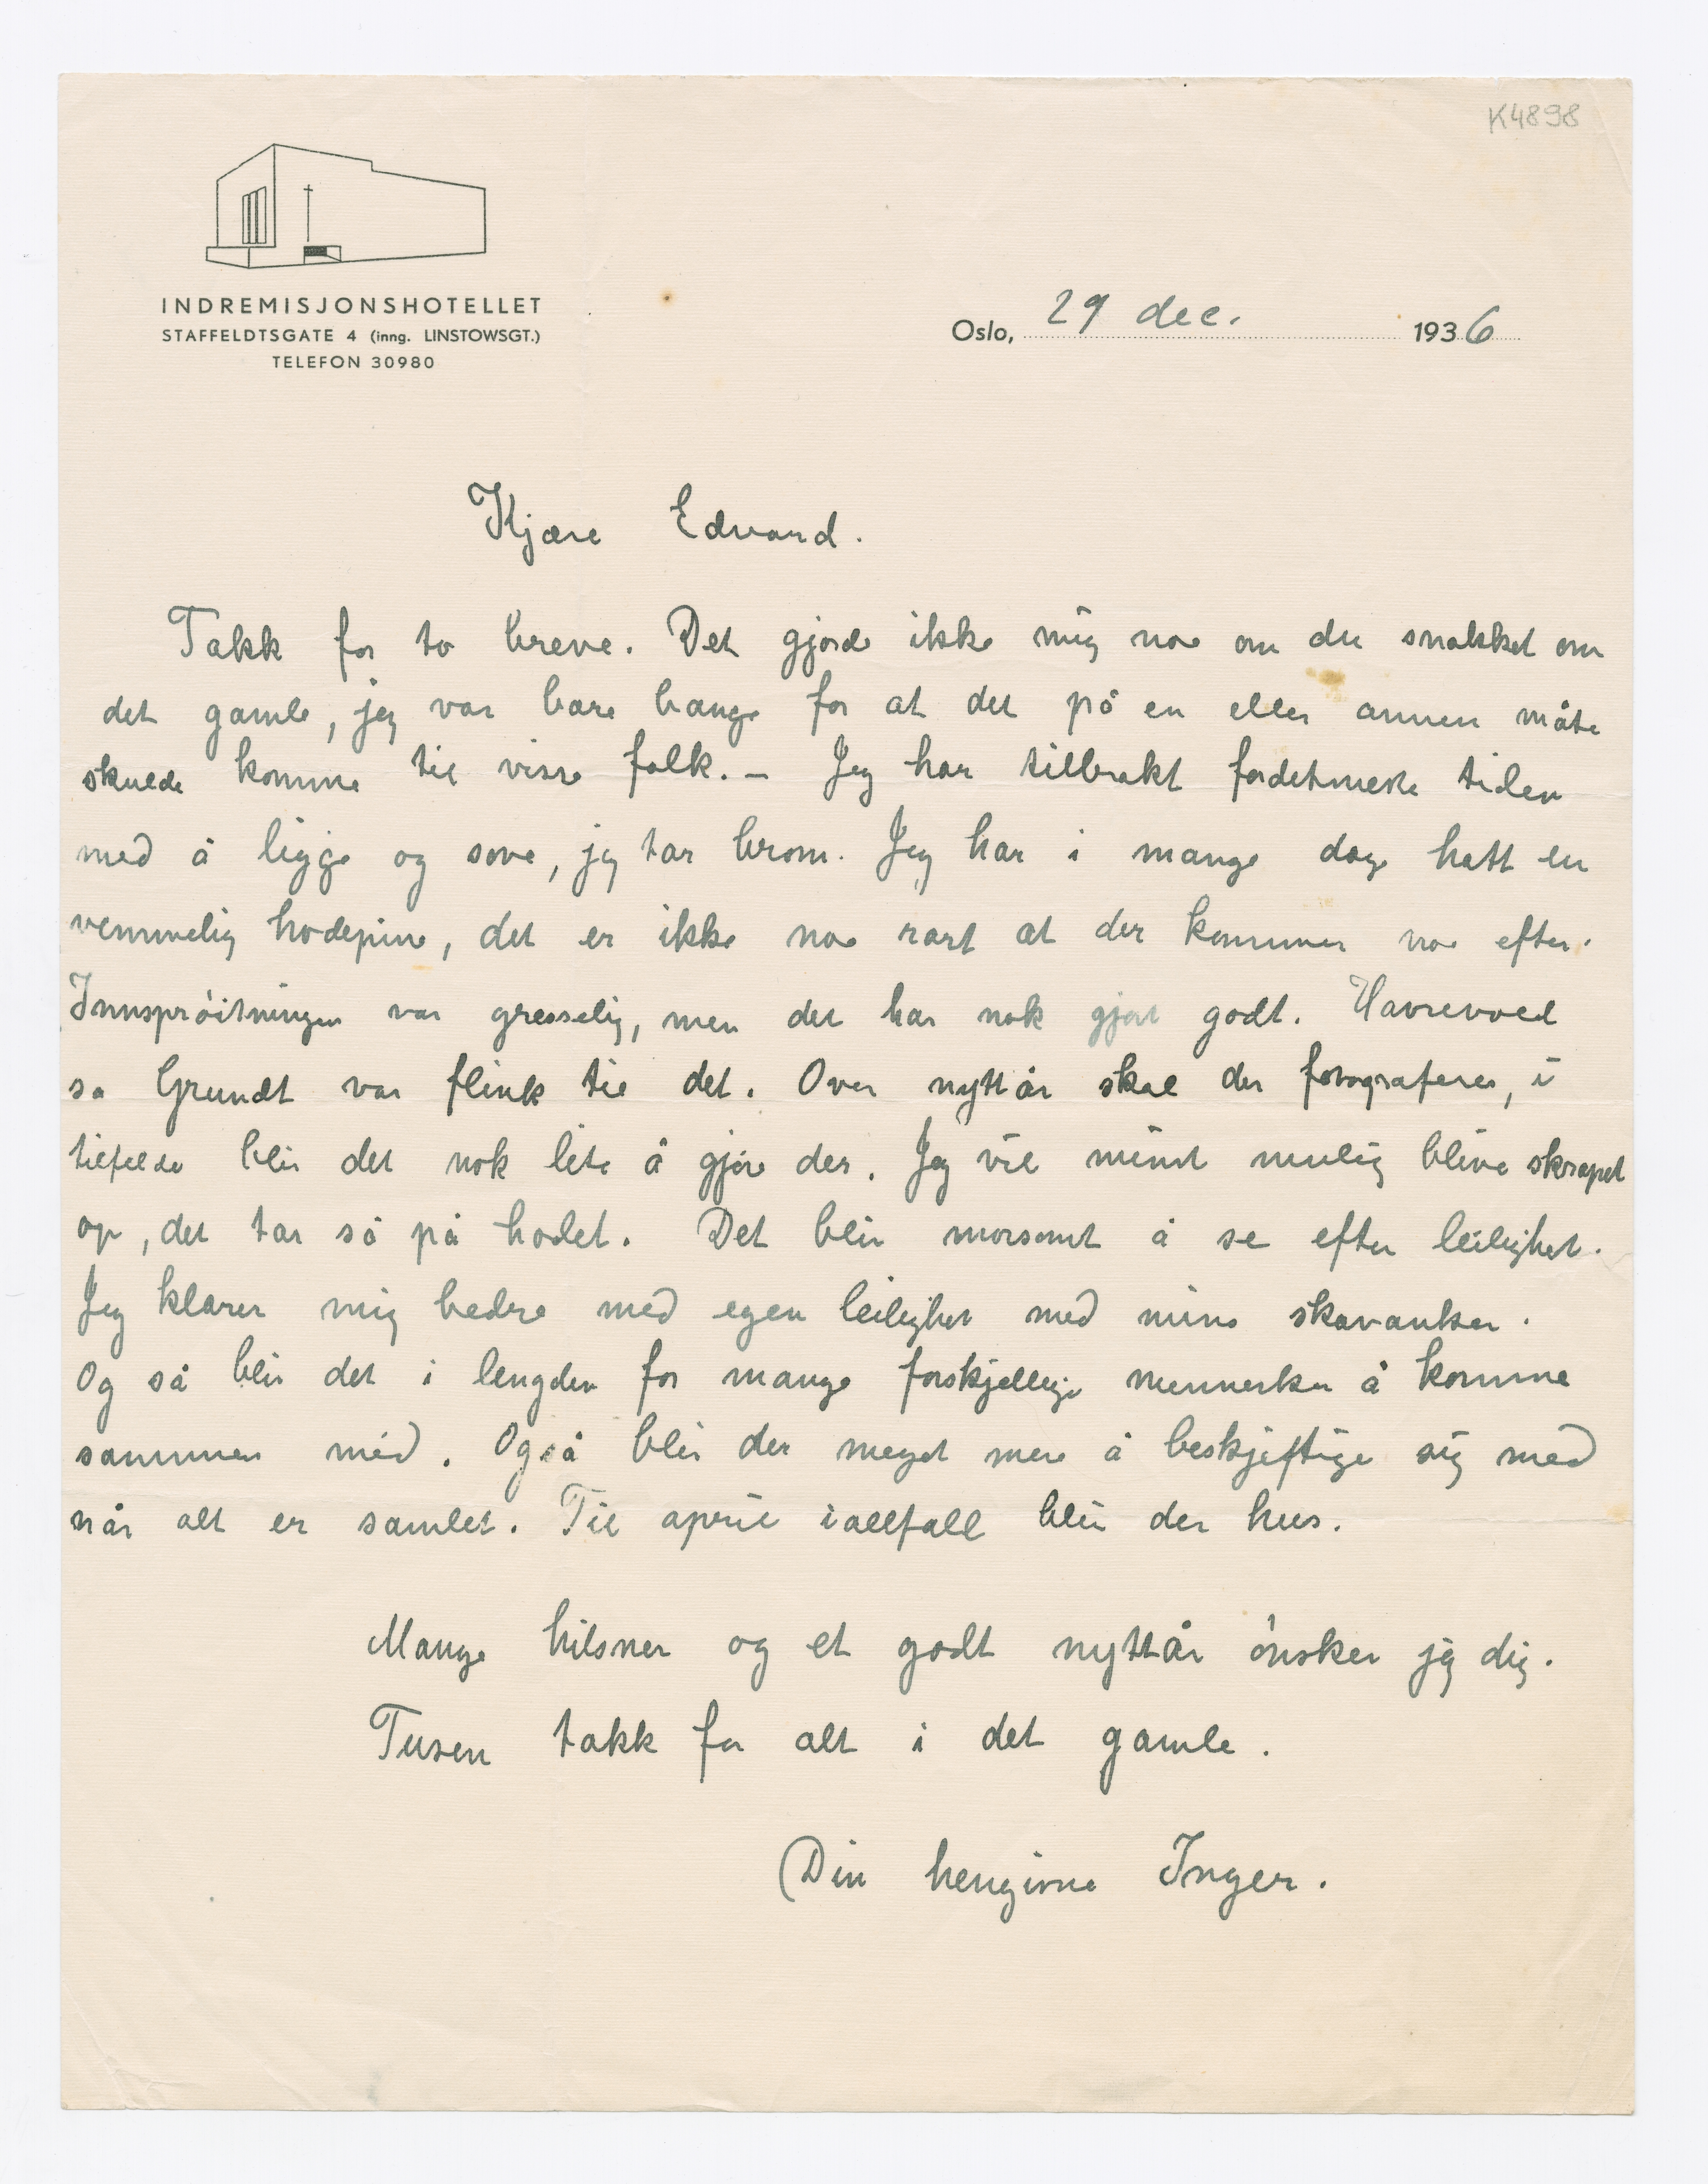 K4898
INDREMISJONSHOTELLET
STAFFELDTSGATE 4 (inng. LINSTOWSGT.)
TELEFON 30980
Oslo, 29 dec. 1936
Kjære Edvard.
Takk for to breve. Det gjorde ikke mig noe om du snakket om
det gamle, jeg var bare bange for at det på en eller annen måte
skulde komme til visse folk. – Jeg har tilbrakt fordetmeste tiden
med å ligge og sove, jeg tar brom. Jeg har i mange dage hatt en
vemmelig hodepine, det er ikke noe rart at der kommer noe efter.
Innsprøitningen var gresselig, men det har nok gjort godt. Havrevoll
sa Grundt var flink til det. Over nyttår skal der fotograferes, i
tilfelde blir det nok lite å gjøre der. Jeg vil minst mulig blive skrapet
op, det tar så på hodet. Det blir morsomt å se efter leilighet.
Jeg klarer mig bedre med egen leilighet med mine skavanker.
Og så blir det i lengden for mange forskjellige mennesker å komme
sammen med. Også blir der meget mere å beskjeftige sig med
når alt er samlet. Til april iallfall blir der hus.
Mange hilsner og et godt nyttår ønsker jeg dig.
Tusen takk for alt i det gamle.
Din hengivne Inger.